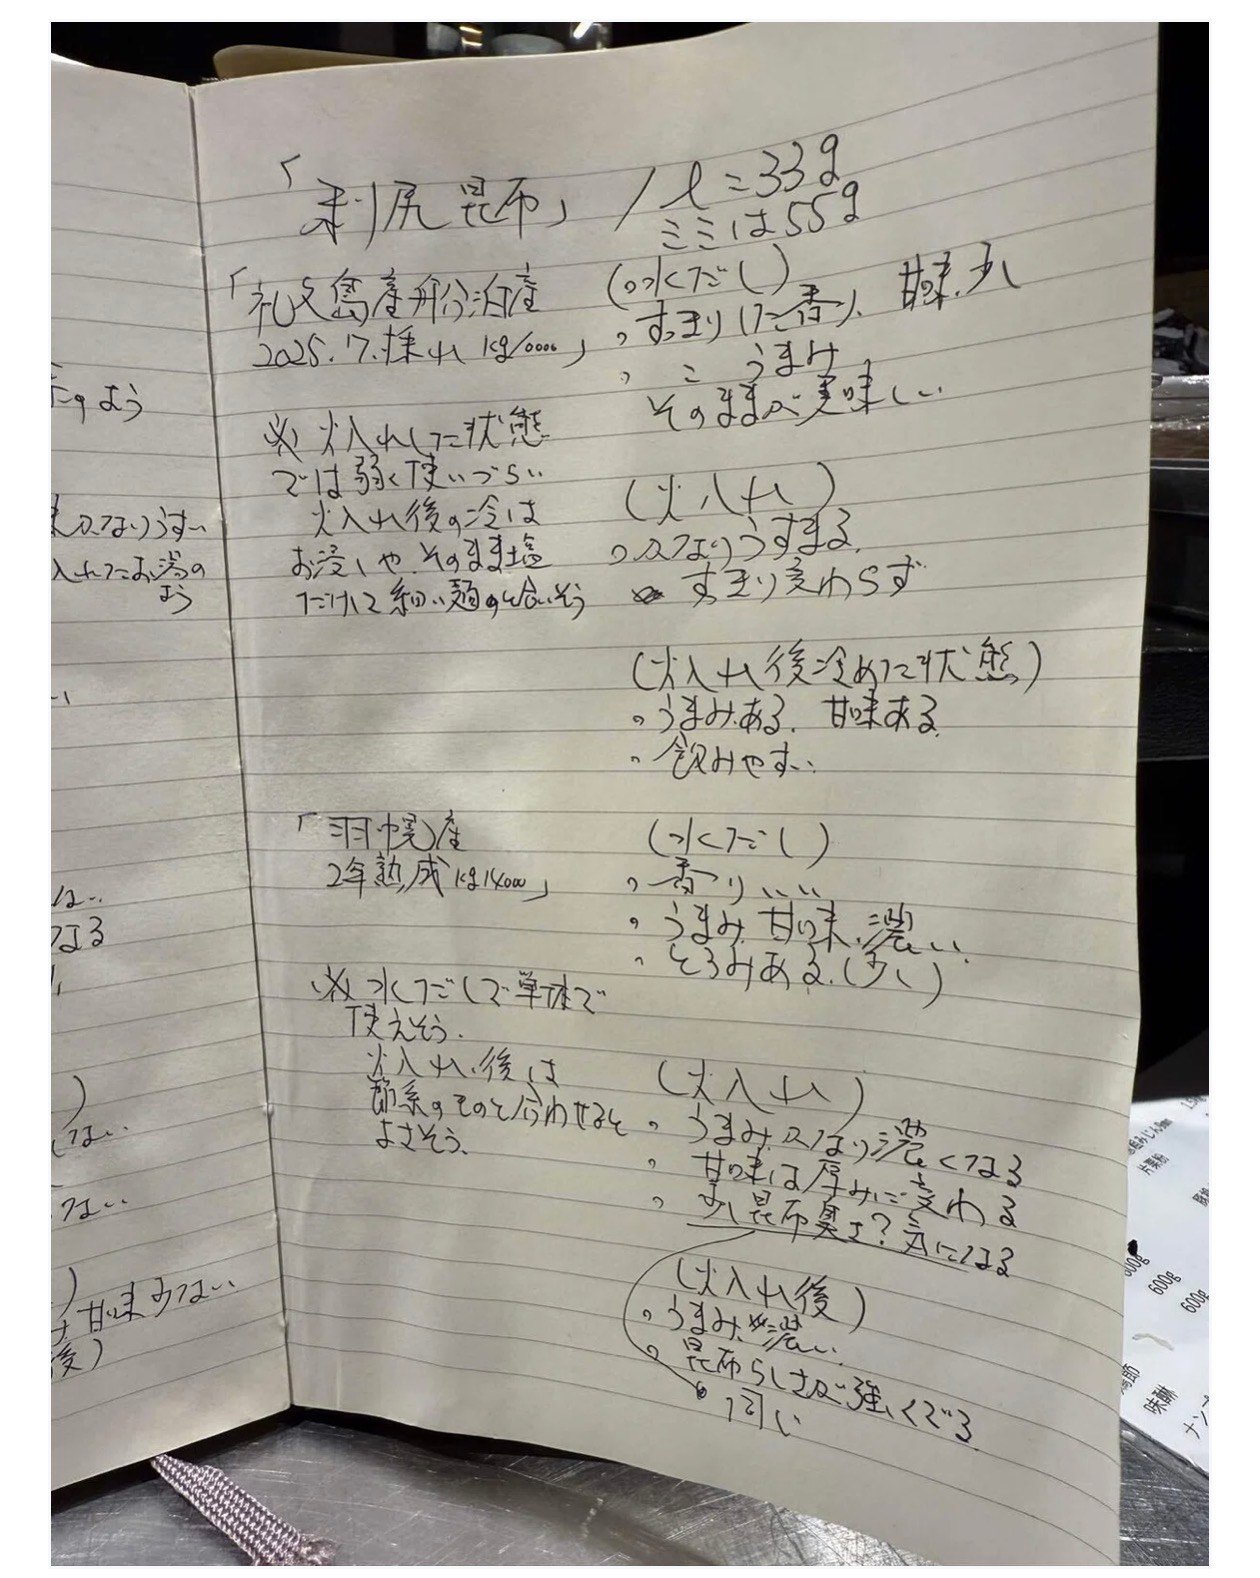 「利尻昆布」 1ℓ=33g
ミミは55g
「礼文島産船泊産
2025.7.採れ kg/10000」
※火入れした状態
では弱く使いづらい
火入れ後の冷は
お浸しや、そのまま塩
だけして細い麺のと合いそう
(水だし)
・すっきりした香り、甘味、少し
・こ うまみ
そのままが美味しい
(火入れ)
・かなりうすまる。
すっきり変わらず
(火入れ後冷めた状態)
・うまみある、甘味ある
・飲みやすい
「羽幌産
2年熟成 kg14000」
※水だしで単体で
使えそう。
火入れ後は
節系のものと合わせると
よさそう。
(水だし)
・香りいい
・うまみ、甘味、濃い、
・とろみある、(少し)
(火入れ)
・うまみかなり濃くなる
・甘味は厚みに変わる
・少し昆布臭さ?気になる
(火入れ後)
・うまみ濃い
・昆布らしさが強くでる
・同い
たのよう
かなりうすい
入れたお湯の
よう
い
はい
なる
)
ない
ない
)
甘味少ない
後)
600g
600g
600g
片栗粉
味醂